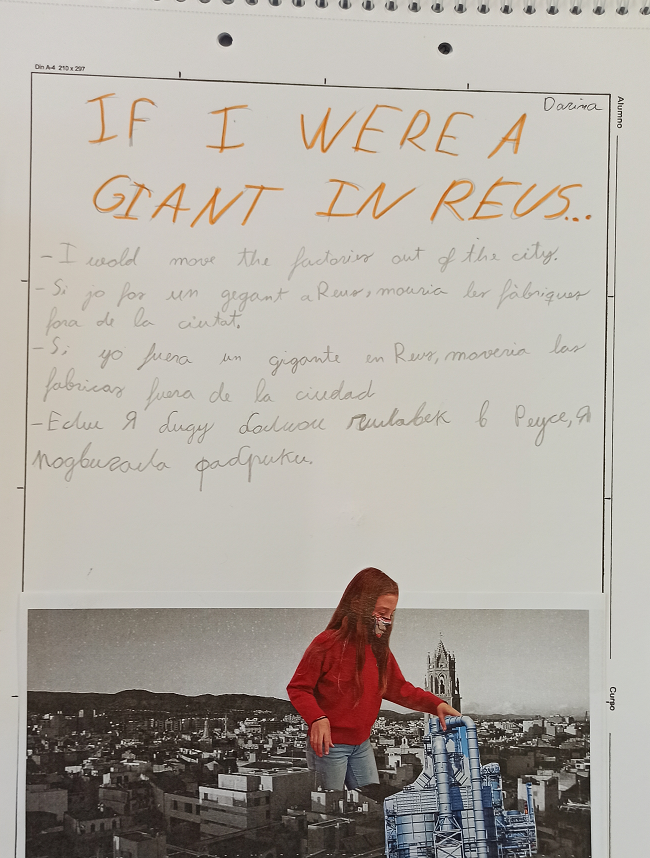 Din A-4 210 x 297
Alumno
Darina
IF I WERE A
GIANT IN REUS...
- I wold move the factories out of the city.
- Si jo fos un gegant a Reus, mouria les fàbriques
fora de la ciutat.
- Si yo fuera un gigante en Reus, moveria las
fabricas fuera de la ciudad
- Если Я буду большой человек в Реусе, Я
подвигала фабрики.
Curso